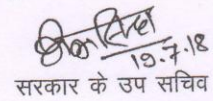 19.7.18
सरकार के उप सचिव